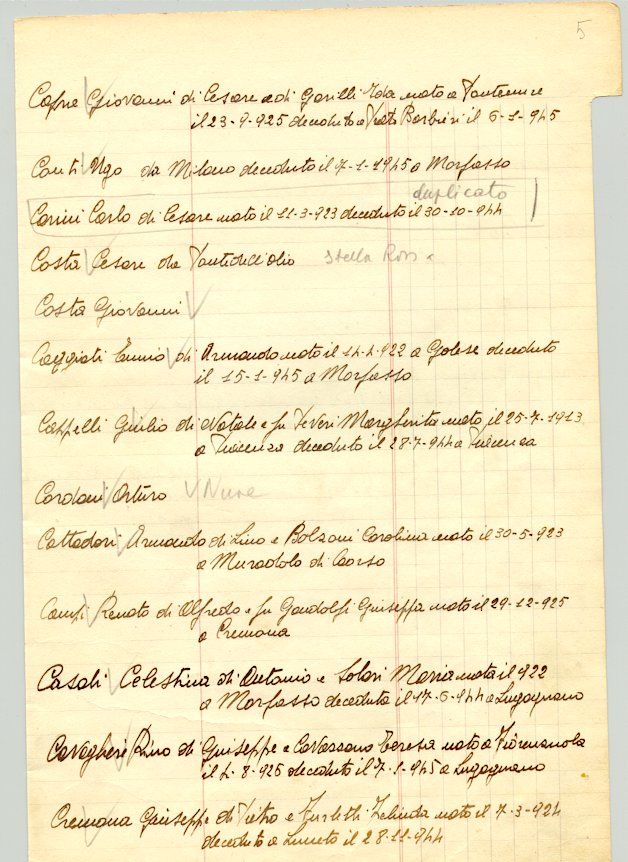 5
Giovanni di Cesare e di Gorilli Ida nato a
il 23-9-925 deceduto a Prato Barbieri il 6-1-945
Conti Ugo da Milano deceduto il 7-1-1945 a Morfasso
duplicato
Carini Carlo di Cesare nato il 11-3-923 deceduto il 30-10-944
Costa Cesare da Pontedell'olio Stella Ross
Costa Giovanni
Caggiati Ennio di Armando nato il 922 a Golese deceduto
il 15-1-945 a Morfasso
Cappelli Giulio di Natale e fu Severi Margherita nato il 25-7-1913
a Piacenza deceduto il 28-7-944 a Piacenza
Cordani Arturo Nure
Cattadori Armando di Lino e Bolzani Carolina nato il 30-5-923
a Muradolo di Caorso
Campi Renato di Alfredo e fu Gandolfi Giuseppa nato il 29-12-925
a Cremona
Casali Celestina di Antonio e Solari Maria nata il 922
a Morfasso deceduta il 17-6-944 a Lugagnano
Cavaghere Rino di Giuseppe e Cavazzano Teresa nato a Fiorenzuola
il 8-925 deceduto il 7-1-945 a Lugagnano
Cremona Giuseppe di Pietro e Zelinda nato il 7-3-924
deceduto a il 28-11-944